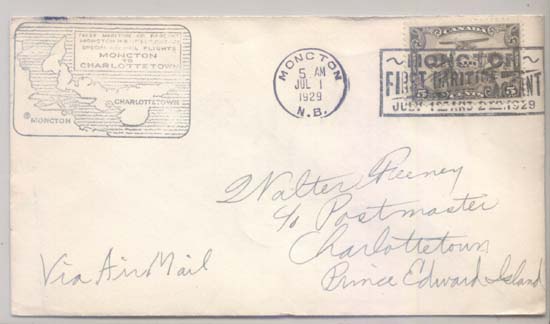 FIRST MARITIME AIR PAGEANT
SPECIAL AIR MAIL FLIGHTS
MONCTON
TO
CHARLOTTETOWN
CHARLOTTETOWN
MONCTON
MONCTON
5 AM
JUL 1
1929
N.B.
CANADA
5
5
MONCTON
FIRST MARITIME
JULY 1ST AND 2ND 1929
Walter
c/o Postmaster
Charlottetown
Prince Edward Island
Via Air Mail